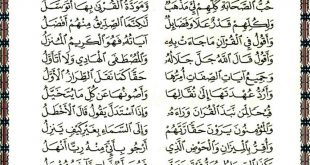 حُبُّ الصَّحَابَةِ كُلِّهِمْ لِي مَذْهَبٌ وَمَوَدَّةُ الْقُرْبَى بِهَا أَتَوَسَّلُ
وَلِكُلِّهِمْ قَدْرٌ عَلَا وَفَضَائِلٌ لَكِنَّمَا الصِّدِّيقُ مِنْهُمْ أَفْضَلُ
وَأَقُولُ فِي الْقُرْآنِ مَا جَاءَتْ بِهِ آيَاتُهُ فَهُوَ الْكَرِيمُ الْمُنْزَلُ
وَأَقُولُ قَالَ اللهُ جَلَّ جَلَالُهُ وَالْمُصْطَفَى الْهَادِي وَلَا أَتَأَوَّلُ
وَجَمِيعُ آيَاتِ الصِّفَاتِ أُمِرُّهَا حَقًّا كَمَا نَقَلَ الطِّرَازُ الْأَوَّلُ
وَأَرُدُّ عُهْدَتَهَا إِلَى نُقَّالِهَا وَأَصُونُهَا عَنْ كُلِّ مَا يُتَخَيَّلُ
قُبْحًا لِمَنْ نَبَذَ الْقُرَانَ وَرَاءَهُ وَإِذَا اسْتَدَلَّ يَقُولُ قَالَ الْأَخْطَلُ
وَالْمُؤْمِنُونَ يَرَوْنَ حَقًّا رَبَّهُمْ وَإِلَى السَّمَاءِ بِغَيْرِ كَيْفٍ يَنْزِلُ
وَأُقِرُّ بِالْمِيزَانِ وَالْحَوْضِ الَّذِي أَرْجُو بِأَنِّي مِنْهُ رِيًّا أَنْهَلُ